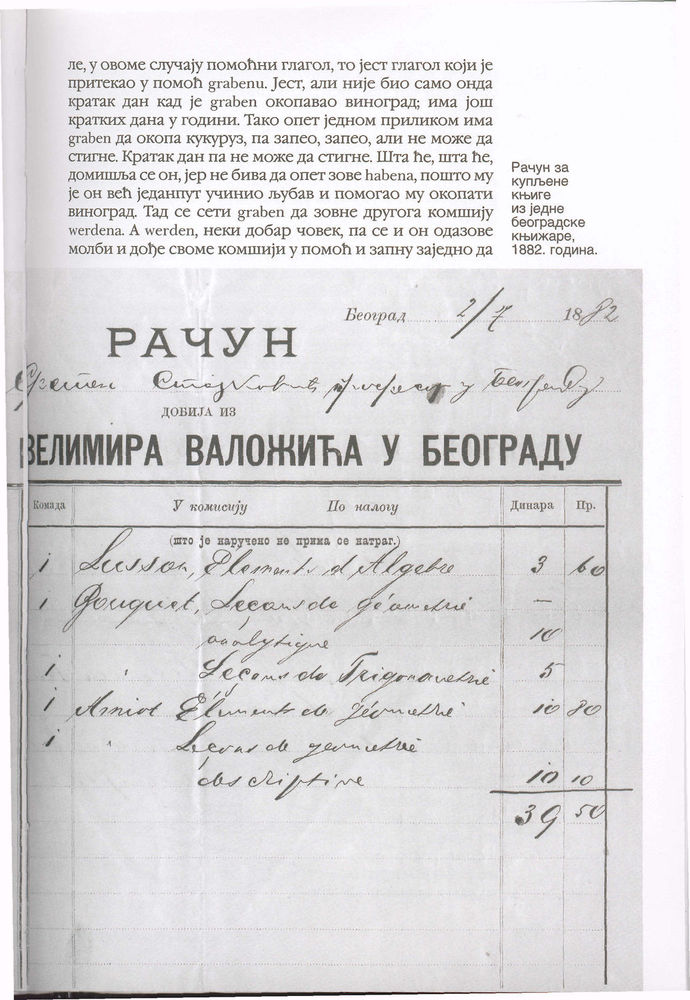 ле, у овоме случају помоћни глагол, то јест глагол који је
притекао у помоћ grabenu. Јест, али није био само онда
кратак дан кад је graben окопавао виноград; има још
кратких дана у години. Тако опет једном приликом има
graben да окопа кукуруз, па запео, запео, али не може да
стигне. Кратак дан па не може да стигне. Шта ће, шта ће,
домишља се он, јер не бива да опет зове habena, пошто му
је он већ једанпут учинио љубав и помогао му окопати
виноград. Тад се сети graben да зовне другога комшију
werdena. А werden, неки добар човек, па се и он одазове
молби и дође своме комшији у помоћ и запну заједно да
Рачун за
купљене
књиге
из једне
београдске
књижаре,
1882. година.
Београд 2/7 1882
РАЧУН
Сретен професор у Београду
ДОБИЈА ИЗ
ВЕЛИМИРА ВАЛОЖИЋА У БЕОГРАДУ
Комада У комисију По налогу Динара Пр.
(што је наручено не прима се натраг.)
1 Élements d Algebre 3 60
1 Bouquet, Leçons de géometrié
analytique 10
1 " Leçons de Trigonometrié 5
1 Amiot Élements de géometrié 10 80
1 " Leçons de geometrié
descriptive 10 10
39 50